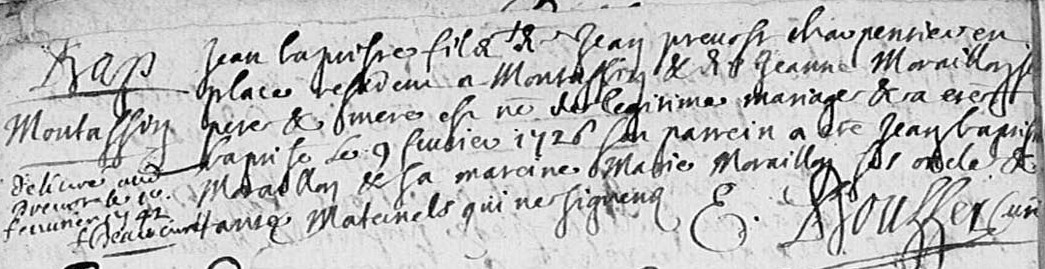 Bap
Montassin
delivré
prevost le 10
fevrier 1742
Jean baptiste fils de Jean prevost charpentier en
place resident a Montassin & de Jeanne Moraillon ses
pere & mere est ne de legitime mariage & a ete
baptise le 9 fevrier 1726 son parrein a ete Jean baptiste
Moraillon & sa mareine Marie Moraillon ses oncle &
tante Maternels qui ne signent E. Rousset Curé